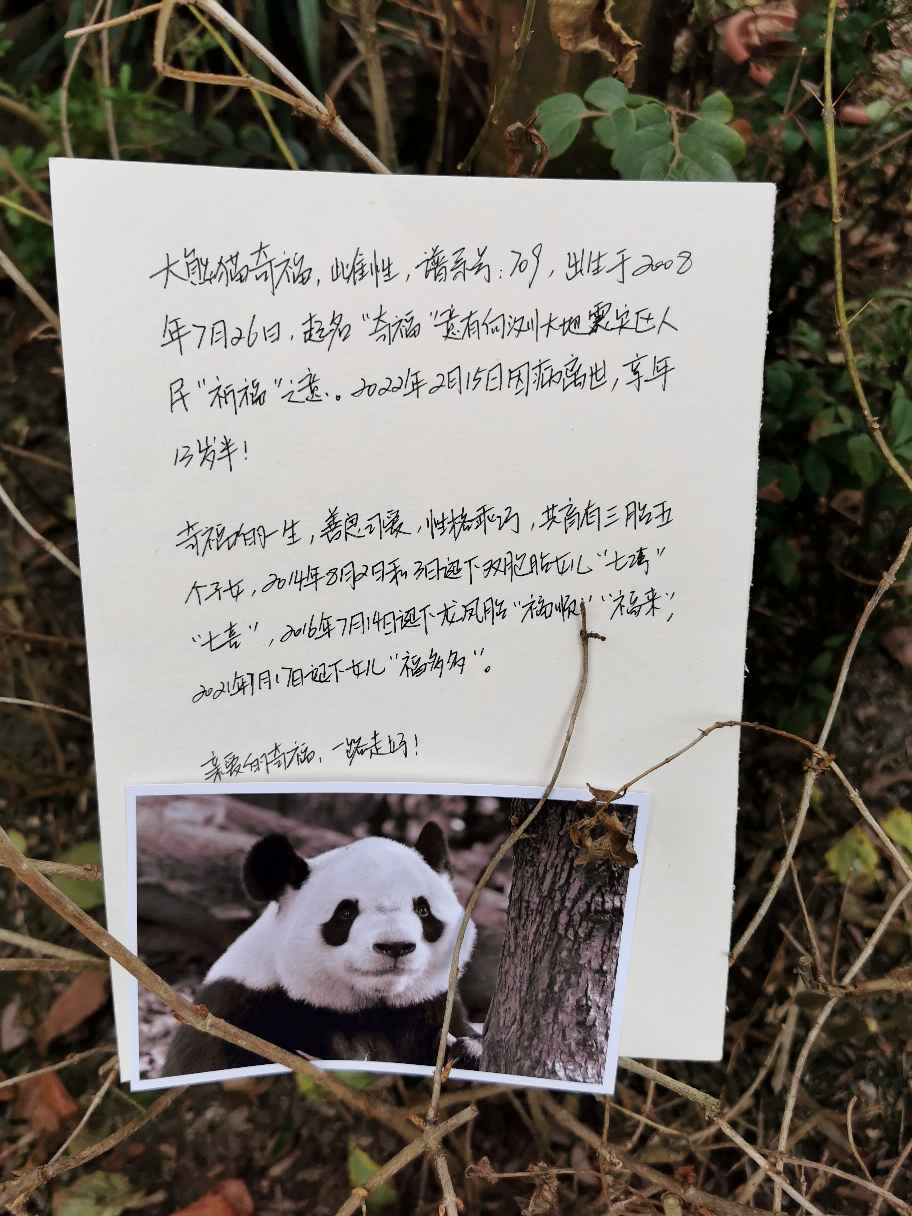 大熊猫奇福，雌性，谱系号：709，出生于2008
年7月26日，起名“奇福”意有向汶川大地震灾区人
民“祈福”之意。2022年2月15日因病离世，享年
13岁半！
奇福的一生，善良可爱，性格乖巧，共育有三胎五
个子女，2014年8月2日和3日诞下双胞胎女儿“七巧”
“七喜”，2016年7月14日诞下龙凤胎“福顺”“福来”，
2021年7月17日诞下女儿“福多多”。
亲爱的奇福，一路走好！